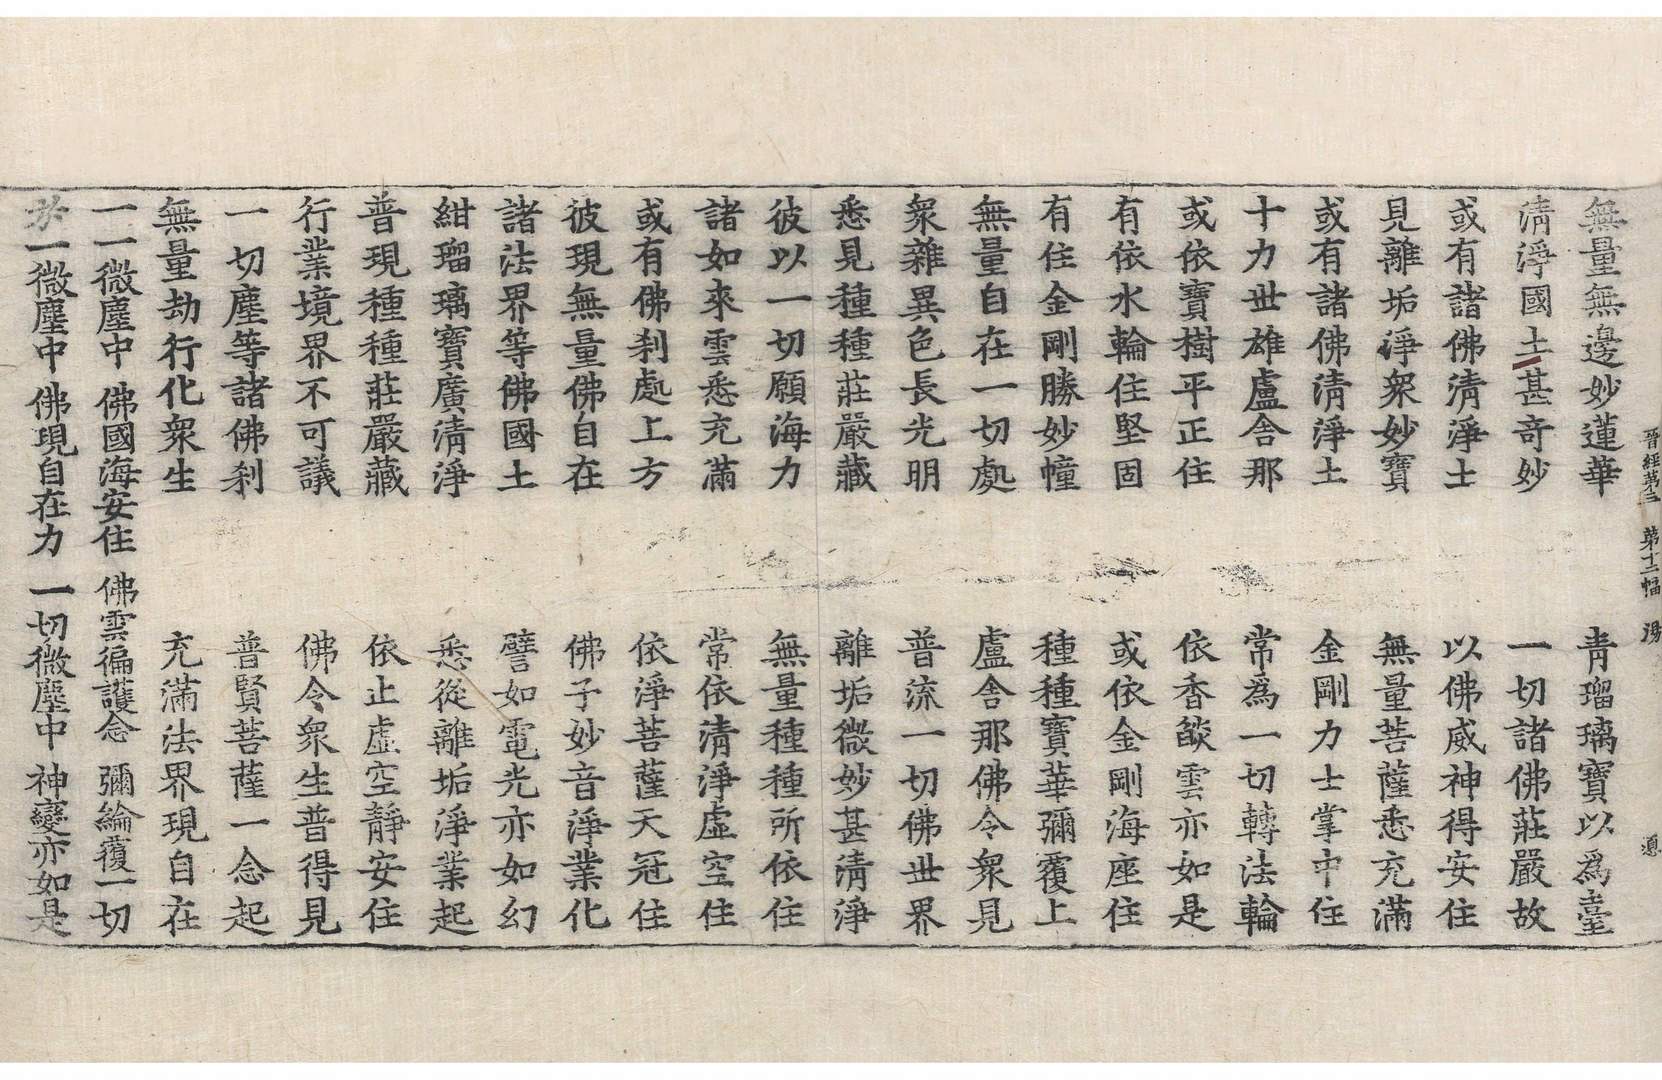 晉經第三 第十二幅 湯
無量無邊妙蓮華 青瑠璃寶以為臺
清淨國土甚奇妙 一切諸佛莊嚴故
或有諸佛清淨土 以佛威神得安住
見離垢淨眾妙寶 無量菩薩悉充滿
或有諸佛清淨土 金剛力士掌中住
十力世雄盧舍那 常為一切轉法輪
或依寶樹平正住 依香燄雲亦如是
有依水輪住堅固 或依金剛海座住
有住金剛勝妙幢 種種寶華彌覆上
無量自在一切處 盧舍那佛令眾見
眾雜異色長光明 普流一切佛世界
悉見種種莊嚴藏 離垢微妙甚清淨
彼以一切願海力 無量種種所依住
諸如來雲悉充滿 常依清淨虛空住
或有佛剎處上方 依淨菩薩天冠住
彼現無量佛自在 佛子妙音淨業化
諸法界等佛國土 譬如電光亦如幻
紺瑠璃寶廣清淨 悉從離垢淨業起
普現種種莊嚴藏 依止虛空靜安住
行業境界不可議 佛令眾生普得見
一切塵等諸佛剎 普賢菩薩一念起
無量劫行化眾生 充滿法界現自在
一一微塵中 佛國海安住 佛雲徧護念 彌綸覆一切
於一微塵中 佛現自在力 一切微塵中 神變亦如是